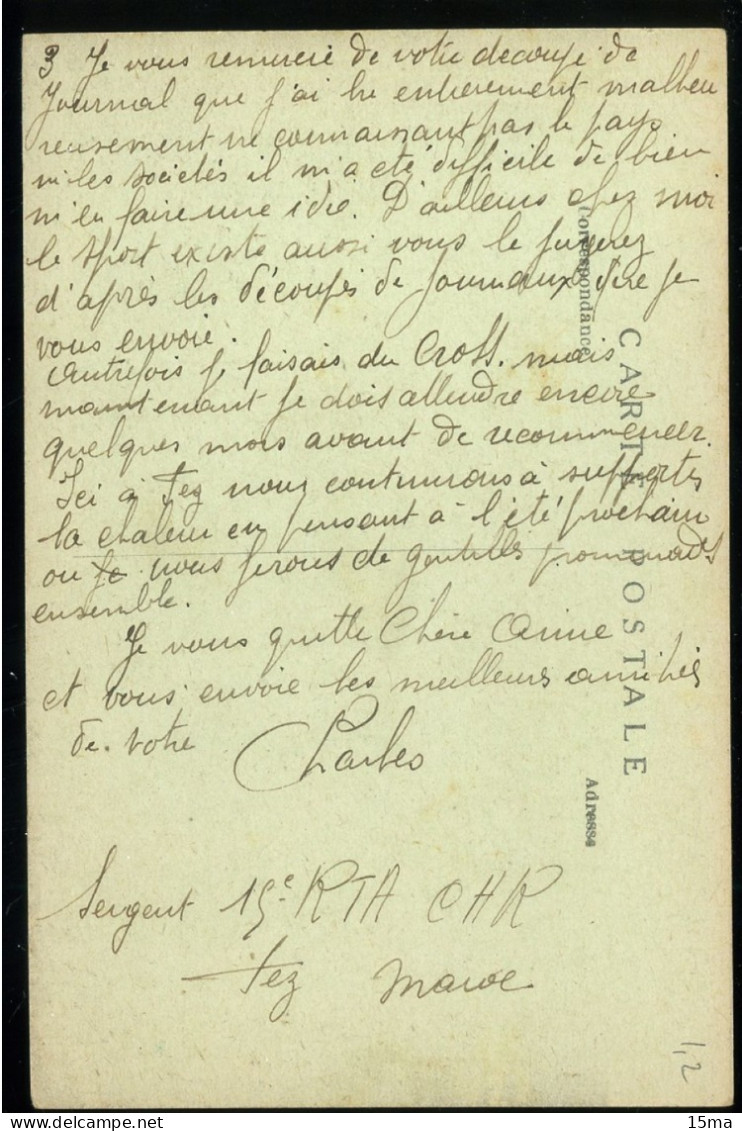 3 Je vous remercie de votre decoupe de
Journal que j'ai lu entierement malheu
reusement ne connaissant pas le pays
ni les societés il m'a eté difficile de bien
m'en faire une idée. D'ailleurs chez moi
le sport existe aussi vous le jugerez
d'après les découpés de journaux que je
vous envoie.
Autrefois je faisais du Cross. mais
maintenant je dois attendre encore
quelques mois avant de recommencer.
Ici à Fez nous continuons à supporter
la chaleur en pensant à l'été prochain
ou je nous ferons de gentilles promenades
ensemble.
Je vous quitte Chère Amie
et vous envoie les meilleurs amitiés
de votre
Charles
Sergent 15e RTA CHR
Fez Maroc
Correspondance
CARTE POSTALE
Adresse
1,2
15ma